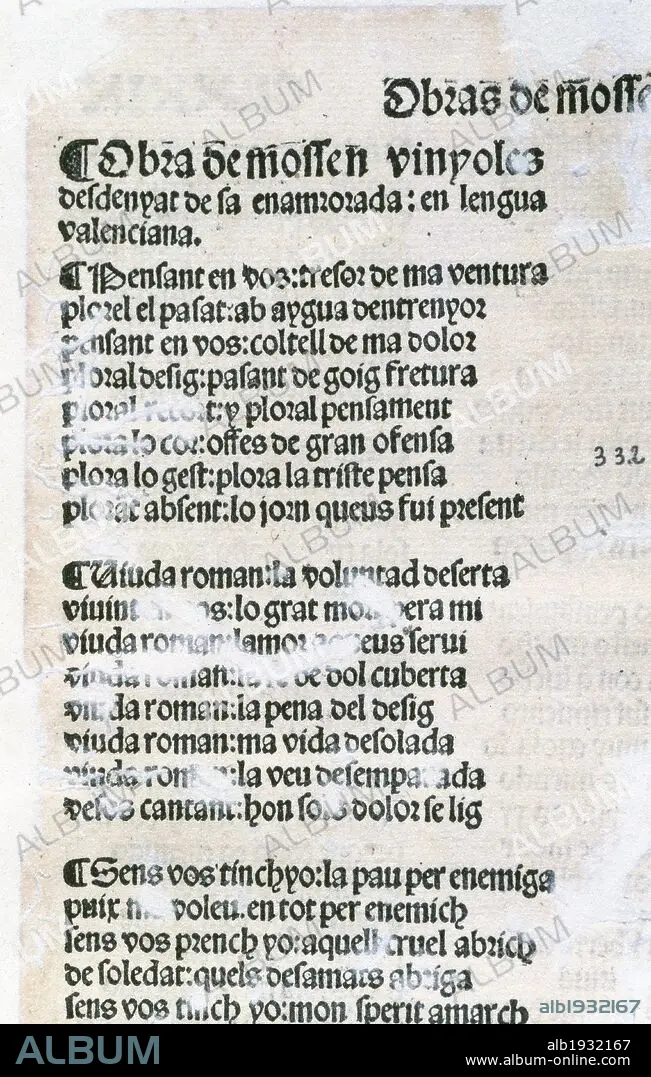 Obras de mosse
¶ Obra de mossen vinyoles
desdenyat de sa enamorada: en lengua
valenciana.
¶ Pensant en vos: tresor de ma ventura
plorel el pasat: ab aygua dentrenyor
pensant en vos: coltell de ma dolor
ploral desig: pasant de goig fretura
ploral y ploral pensament
plora lo cor: ostes de gran ofensa
332
plora lo gest: plora la triste pensa
plorat absent: lo jorn queus fui present
¶ Uiuda roman: la voluntad deserta
lo grat pera mi
viuda roman: serui
viuda roman: de dol cuberta
viuda roman: la pena del desig
viuda roman: ma vida desolada
viuda la veu desemparada
cantant: hon solo dolor se lig
¶ Sens vos tinch yo: la pau per enemiga
puix voleu. en tot per enemich
sens vos prench yo: aquell cruel abrich
de soledat: quels desamats abriga
sens vos tinch yo: mon sperit amarch
ALBUM
alb1932167
ALBUM
alb1932167
www.album-online.com